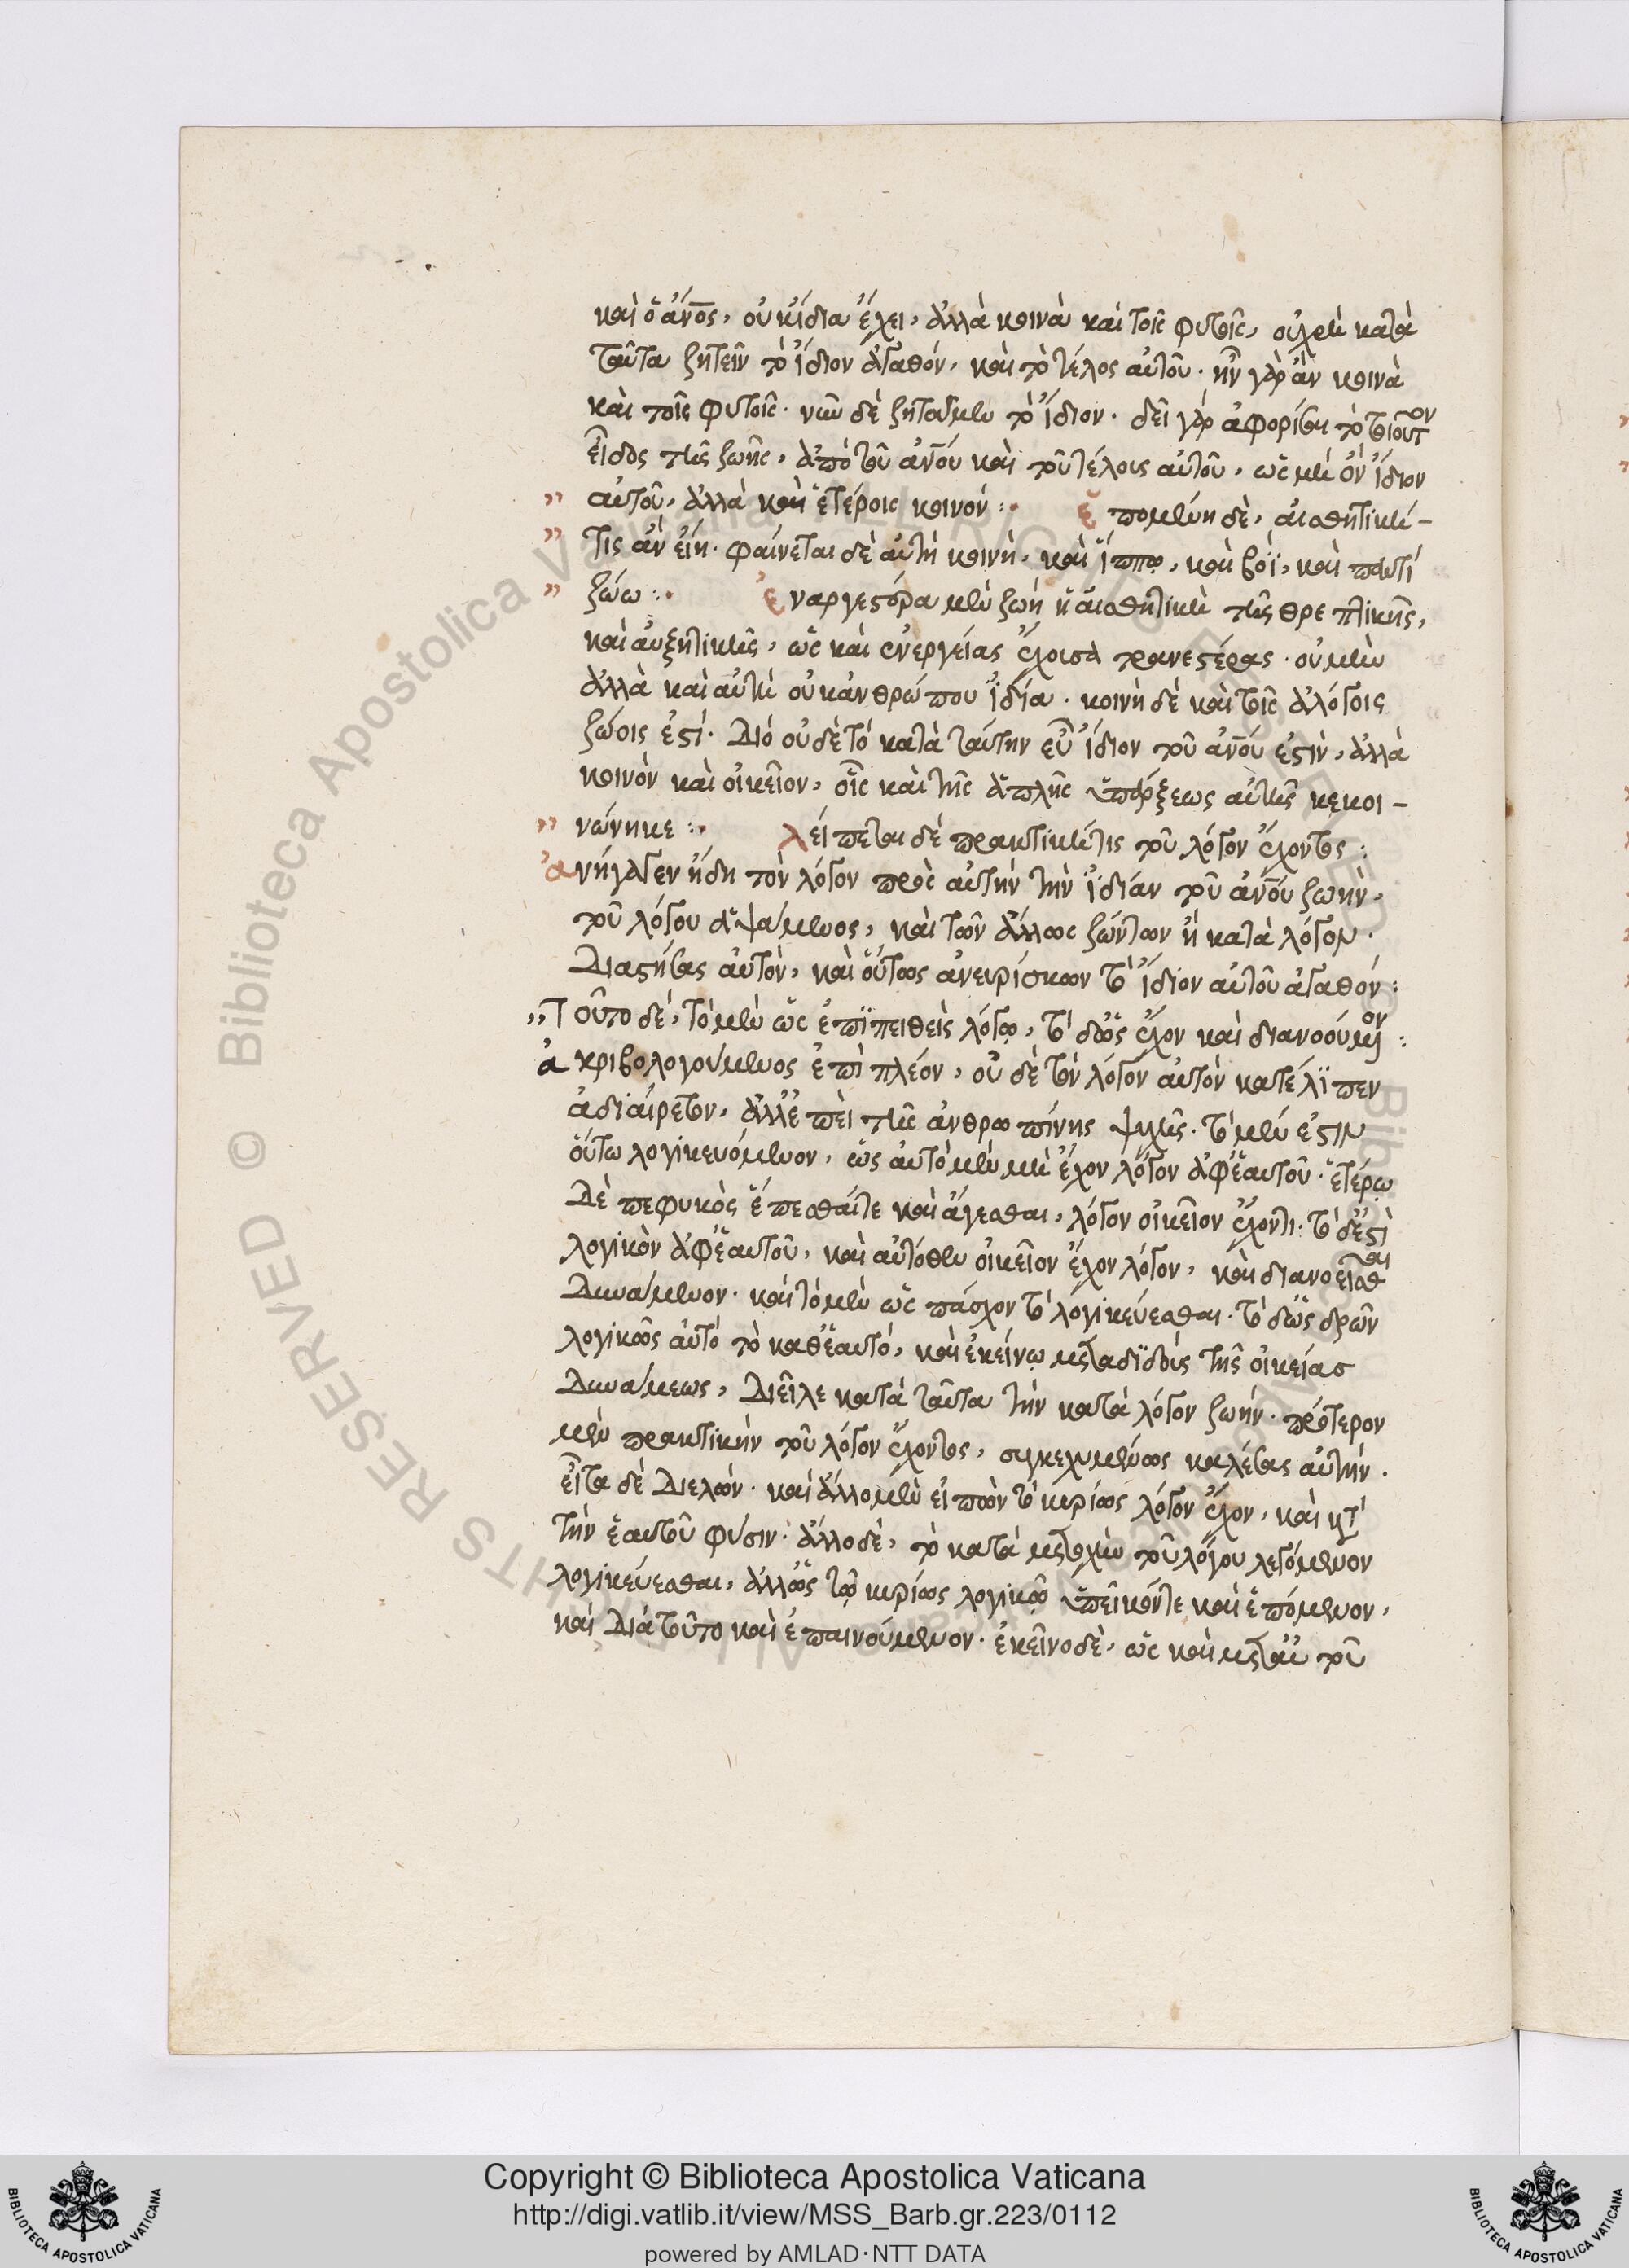 καὶ ὁ ἄνος, οὐκ ἴδια ἔχει, ἀλλὰ κοινὰ καὶ τοῖς φυτοῖς, οὐ χρὴ κατὰ
ταῦτα ζητεῖν τὸ ἴδιον ἀγαθόν, καὶ τὸ τέλος αὐτοῦ. ἦν γὰρ ἂν κοινὰ
καὶ τοῖς φυτοῖς. νῦν δὲ ζητοῦμεν τὸ ἴδιον. δεῖ γὰρ ἀφορίσαι τὸ τοιοῦτον
εἶδος τῆς ζωῆς, ἀπὸ τοῦ ἀνου καὶ τοῦ τέλους αὐτοῦ, ὡς μὴ ὂν ἴδιον
" αὐτοῦ, ἀλλὰ καὶ ἑτέροις κοινόν :. ἑπομένη δὲ, αἰσθητικὴ -
" τις ἂν εἴη. φαίνεται δὲ αὐτὴ κοινὴ, καὶ ἵππῳ, καὶ βοῒ, καὶ παντὶ
" ζώω :. ἐναργεστέρα μὲν ζωὴ ἡ αἰσθητικὴ τῆς θρεπτικῆς,
καὶ αὐξητικῆς, ὡς καὶ ἐνεργείας ἔχουσα τρανεστέρας. οὐ μὴν
ἀλλὰ καὶ αὐτὴ οὐκ ἀνθρώπου ἰδία. κοινὴ δὲ καὶ τοῖς ἀλόγοις
ζώοις ἐστί. Διό οὐδὲ τὸ κατὰ ταύτην εὖ ἴδιον τοῦ ἀνου ἐστὶν, ἀλλὰ
κοινὸν καὶ οἰκεῖον, οἷς καὶ τῆς ἁπλῆς ὑπάρξεως αὐτῆς κεκοι -
" νώνηκε :. λείπεται δὲ πρακτικὴ τις τοῦ λόγον ἔχοντος :
ἀνήγαγεν ἤδη τὸν λόγον πρὸς αὐτὴν τὴν ἰδίαν τοῦ ἀνου ζωὴν,
τοῦ λόγου ἁψάμενος, καὶ τῶν ἄλλως ζώντων ἢ κατὰ λόγον.
Διαστήσας αὐτὸν, καὶ οὕτως ἀνευρίσκων τὸ ἴδιον αὐτοῦ ἀγαθόν :
" Τοῦτο δὲ, τὸ μὲν ὡς ἐπιπειθεὶς λόγῳ, τὸ δ' ὡς ἔχον καὶ διανοούμενον :
ἀκριβολογούμενος ἐπὶ πλέον, οὐδὲ τὸν λόγον αὐτὸν κατέλιπεν
ἀδιαίρετον, ἀλλ' ἐπεὶ τῆς ἀνθρωπίνης ψυχῆς. τὸ μὲν ἐστιν
οὕτω λογικευόμενον, ὡς αὐτὸ μὲν μὴ ἔχον λόγον ἀφ' ἑαυτοῦ. ἑτέρῳ
Δὲ πεφυκὸς ἕπεσθαί τε καὶ ἄγεσθαι, λόγον οἰκεῖον ἔχοντι. τὸ δ' ἐστὶ
λογικὸν ἀφ' ἑαυτοῦ, καὶ αὐτόθεν οἰκεῖον ἔχον λόγον, καὶ διανοεῖσθαι
Δυνάμενον. καὶ τὸ μὲν ὡς πάσχον τὸ λογικεύεσθαι. τὸ δ' ὡς δρῶν
λογικῶς αὐτὸ τὸ καθ' ἑαυτό, καὶ ἐκείνῳ μεταδιδοὺς τῆς οἰκείας
Δυνάμεως, Διεῖλε κατὰ ταῦτα τὴν κατὰ λόγον ζωήν. πρότερον
μὲν πρακτικὴν τοῦ λόγον ἔχοντος, συγκεχυμένως καλέσας αὐτήν.
εἶτα δὲ Διελὼν. καὶ ἄλλο μὲν εἰπὼν τὸ κυρίως λόγον ἔχον, καὶ κατὰ
τὴν ἑαυτοῦ φύσιν. ἄλλο δὲ, τὸ κατὰ μετοχὴν τοῦ λόγου λεγόμενον
λογικεύεσθαι, ἀλλ' ὡς τῷ κυρίως λογικῷ ὑπεῖκόν τε καὶ ἑπόμενον,
καὶ Διὰ τοῦτο καὶ ἐπαινούμενον. ἐκεῖνο δὲ, ὡς καὶ μετὰ τοῦ
Copyright © Biblioteca Apostolica Vaticana
http://digi.vatlib.it/view/MSS_Barb.gr.223/0112
powered by AMLAD·NTT DATA